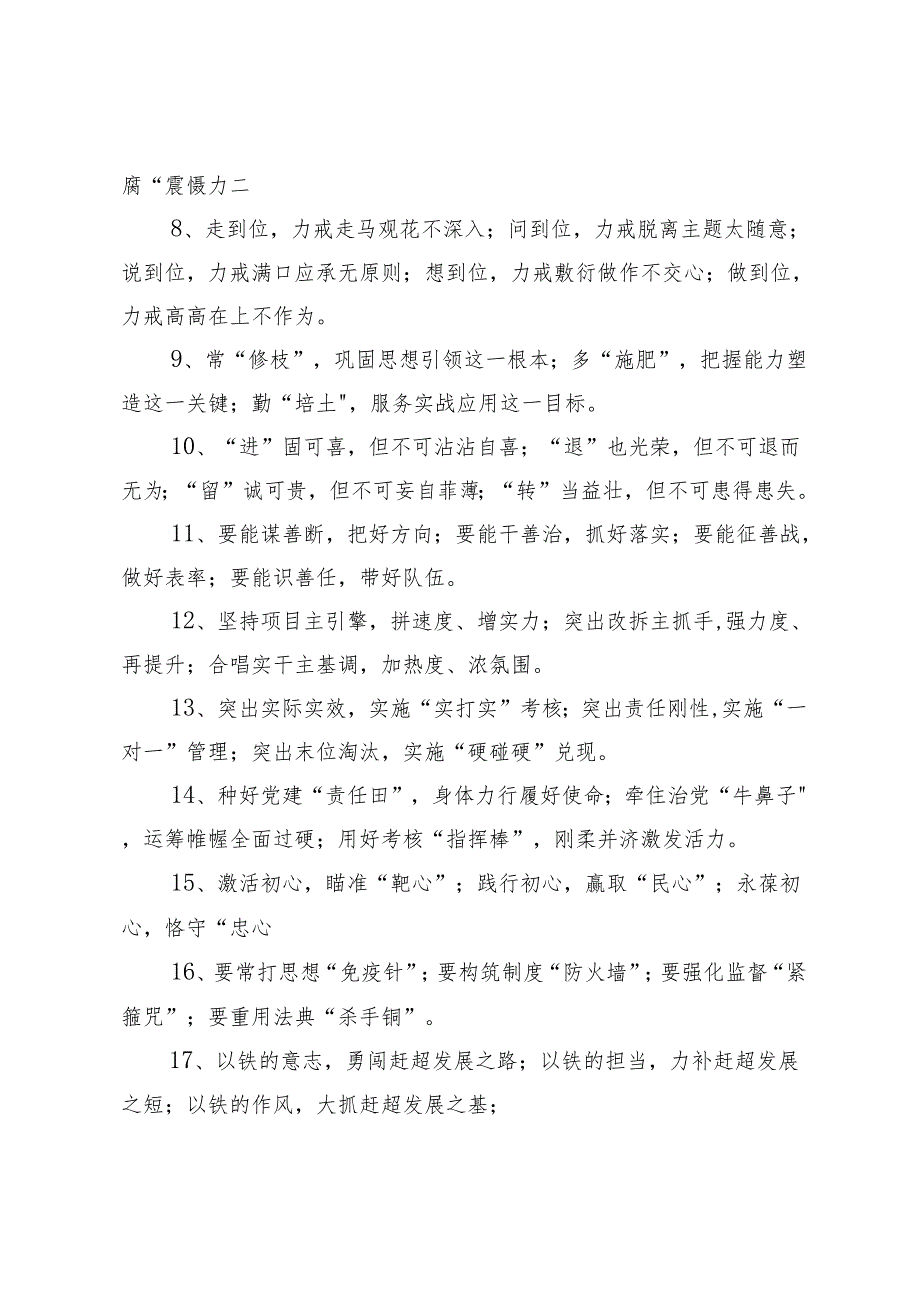 腐“震慑力二
8、走到位，力戒走马观花不深入；问到位，力戒脱离主题太随意；
说到位，力戒满口应承无原则；想到位，力戒敷衍做作不交心；做到位，
力戒高高在上不作为。
9、常“修枝”，巩固思想引领这一根本；多“施肥”，把握能力塑
造这一关键；勤“培土"，服务实战应用这一目标。
10、“进”固可喜，但不可沾沾自喜；“退”也光荣，但不可退而
无为；“留”诚可贵，但不可妄自菲薄；“转”当益壮，但不可患得患失。
11、要能谋善断，把好方向；要能干善治，抓好落实；要能征善战，
做好表率；要能识善任，带好队伍。
12、坚持项目主引擎，拼速度、增实力；突出改拆主抓手,强力度、
再提升；合唱实干主基调，加热度、浓氛围。
13、突出实际实效，实施“实打实”考核；突出责任刚性,实施“一
对一”管理；突出末位淘汰，实施“硬碰硬”兑现。
14、种好党建“责任田”，身体力行履好使命；牵住治党“牛鼻子"
，运筹帷幄全面过硬；用好考核“指挥棒”，刚柔并济激发活力。
15、激活初心，瞄准“靶心”；践行初心，赢取“民心”；永葆初
心，恪守“忠心
16、要常打思想“免疫针”；要构筑制度“防火墙”；要强化监督“紧
箍咒”；要重用法典“杀手锏”。
17、以铁的意志，勇闯赶超发展之路；以铁的担当，力补赶超发展
之短；以铁的作风，大抓赶超发展之基；